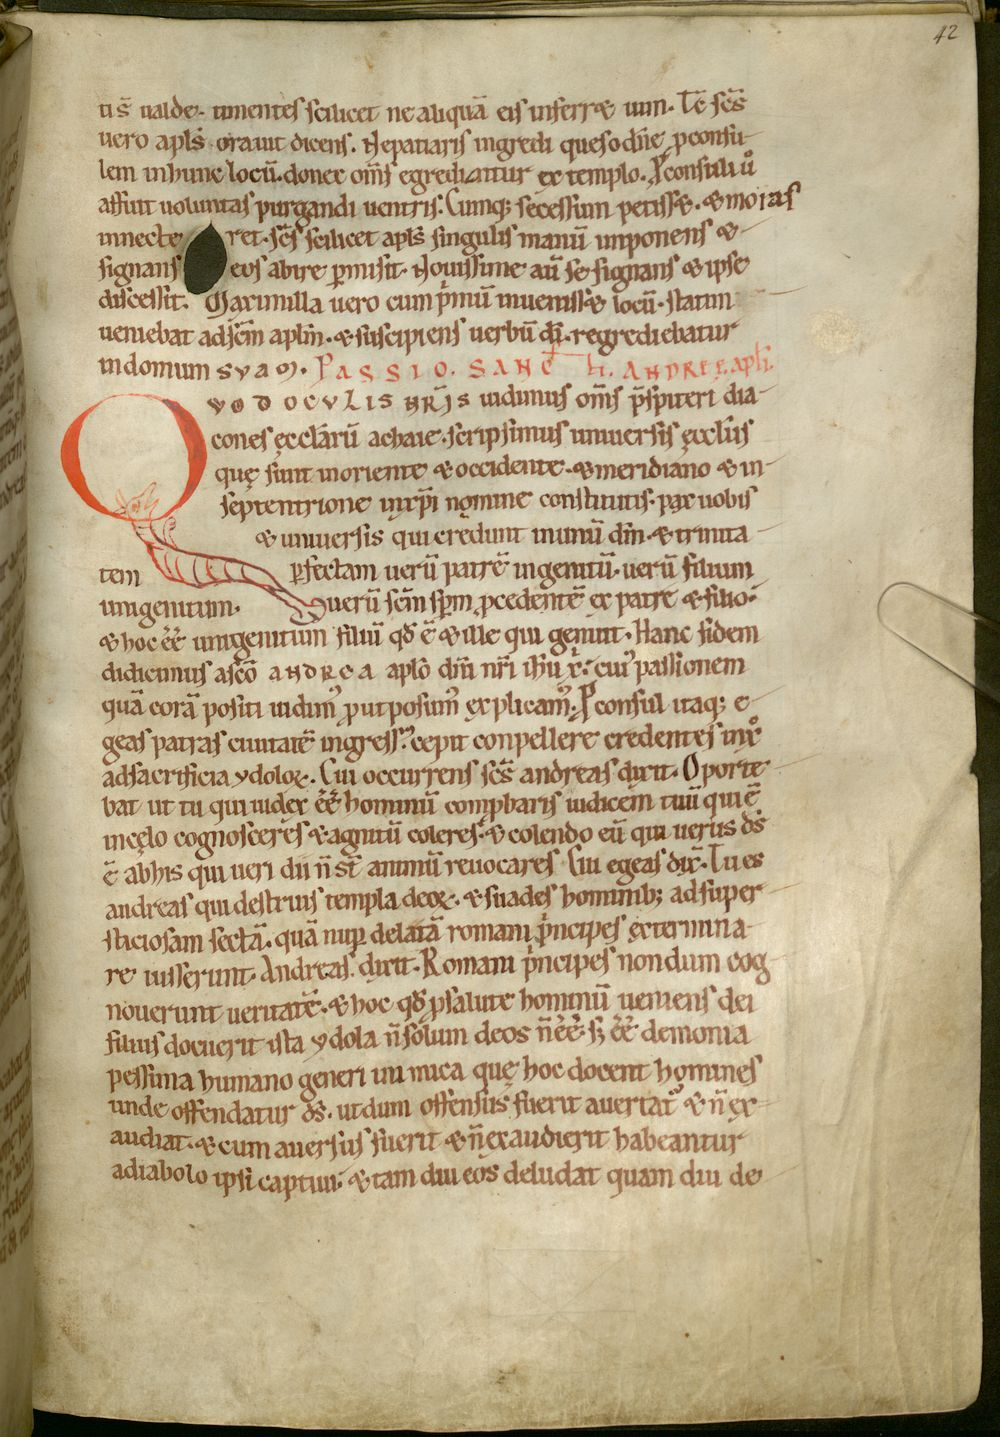 42
tis̄ ualde. timentes scilicet ne aliquā eis inferr& uim. Tc̄ sc̄s
uero apl̄s orauit dicens. Ne patiaris ingredi queso dn̄e ꝓconsu-
lem in hunc locū. donec om̄s egrediantur ex templo. Ꝓconsuli ū
affuit uoluntas purgandi uentris. Cumq; secessum petiss&. & moras
innecte ret. sc̄s scilicet apl̄s singulis manū imponens &
signans eos abire ꝑmisit. Nouissime aū se signans & ipse
discessit. Maximilla uero cum pͥmū inueniss& locū. statim
ueniebat ad sc̄m apl̄m. & suscipiens uerbū dī. regrediebatur
in domum SVAM. PASSIO. SANCTI. ANDREE. apl̄i.
QVOD OCVLIS NR̄IS uidimus om̄s p̄sbiteri dia-
cones ęcclārū achaie. scripsimus uniuersis ęccl̄iis
quę sunt in oriente & occidente. & meridiano & in
septentrione in xp̄i nomine constitutis. pax uobis
& uniuersis qui credunt in unū dm̄. & trinita
tem ꝑfectam uerū patrē ingenitū. uerū filium
unigenitum. uerū sc̄m sp̄m ꝓcedentē ex patre & filio.
& hoc ēē unigenitum filiū qd̄ ē & ille qui genuit. Hanc fidem
didicimus a sc̄o ANDREA aplō dn̄i nr̄i ih̄u x̄. cui᾿ passionem
quā corā positi uidim᾿ ꝓut possum᾿ explicam᾿. Ꝓconsul itaq; e-
geas patras ciuitatē ingress᾿. cepit conpellere credentes in x̄o
ad sacrificia ydoloꝝ. Cui occurrens sc̄s andreas dixit. Oporte
bat ut tu qui iudex ēē hominū comꝓbaris iudicem tuū qui ē
in cęlo cognosceres & agnitū coleres. & colendo eū qui uerus ds̄
ē ab his qui ueri dii n̄ st̄ animū reuocares. Cui egeas dix̄. Tu es
andreas qui destruis templa deoꝝ. & suades hominib; ad super
sticiosam sectā. quā nuꝑ delatā romani pͥncipes extermina-
re iusserunt. Andreas dixit. Romani pͥncipes nondum cog
nouerunt ueritatē. & hoc qd̄ ꝓ salute hominū ueniens dei
filius docuerit ista ydola n̄ solum deos n̄ ēē. s; ēē demonia
pessima humano generi inimica quę hoc docent homines
unde offendatur ds̄. ut dum offensus fuerit auertat᾿ & n̄ ex-
audiat. & cum auersus fuerit & n̄ exaudierit habeantur
a diabolo ipsi captiui. & tam diu eos deludat quam diu de